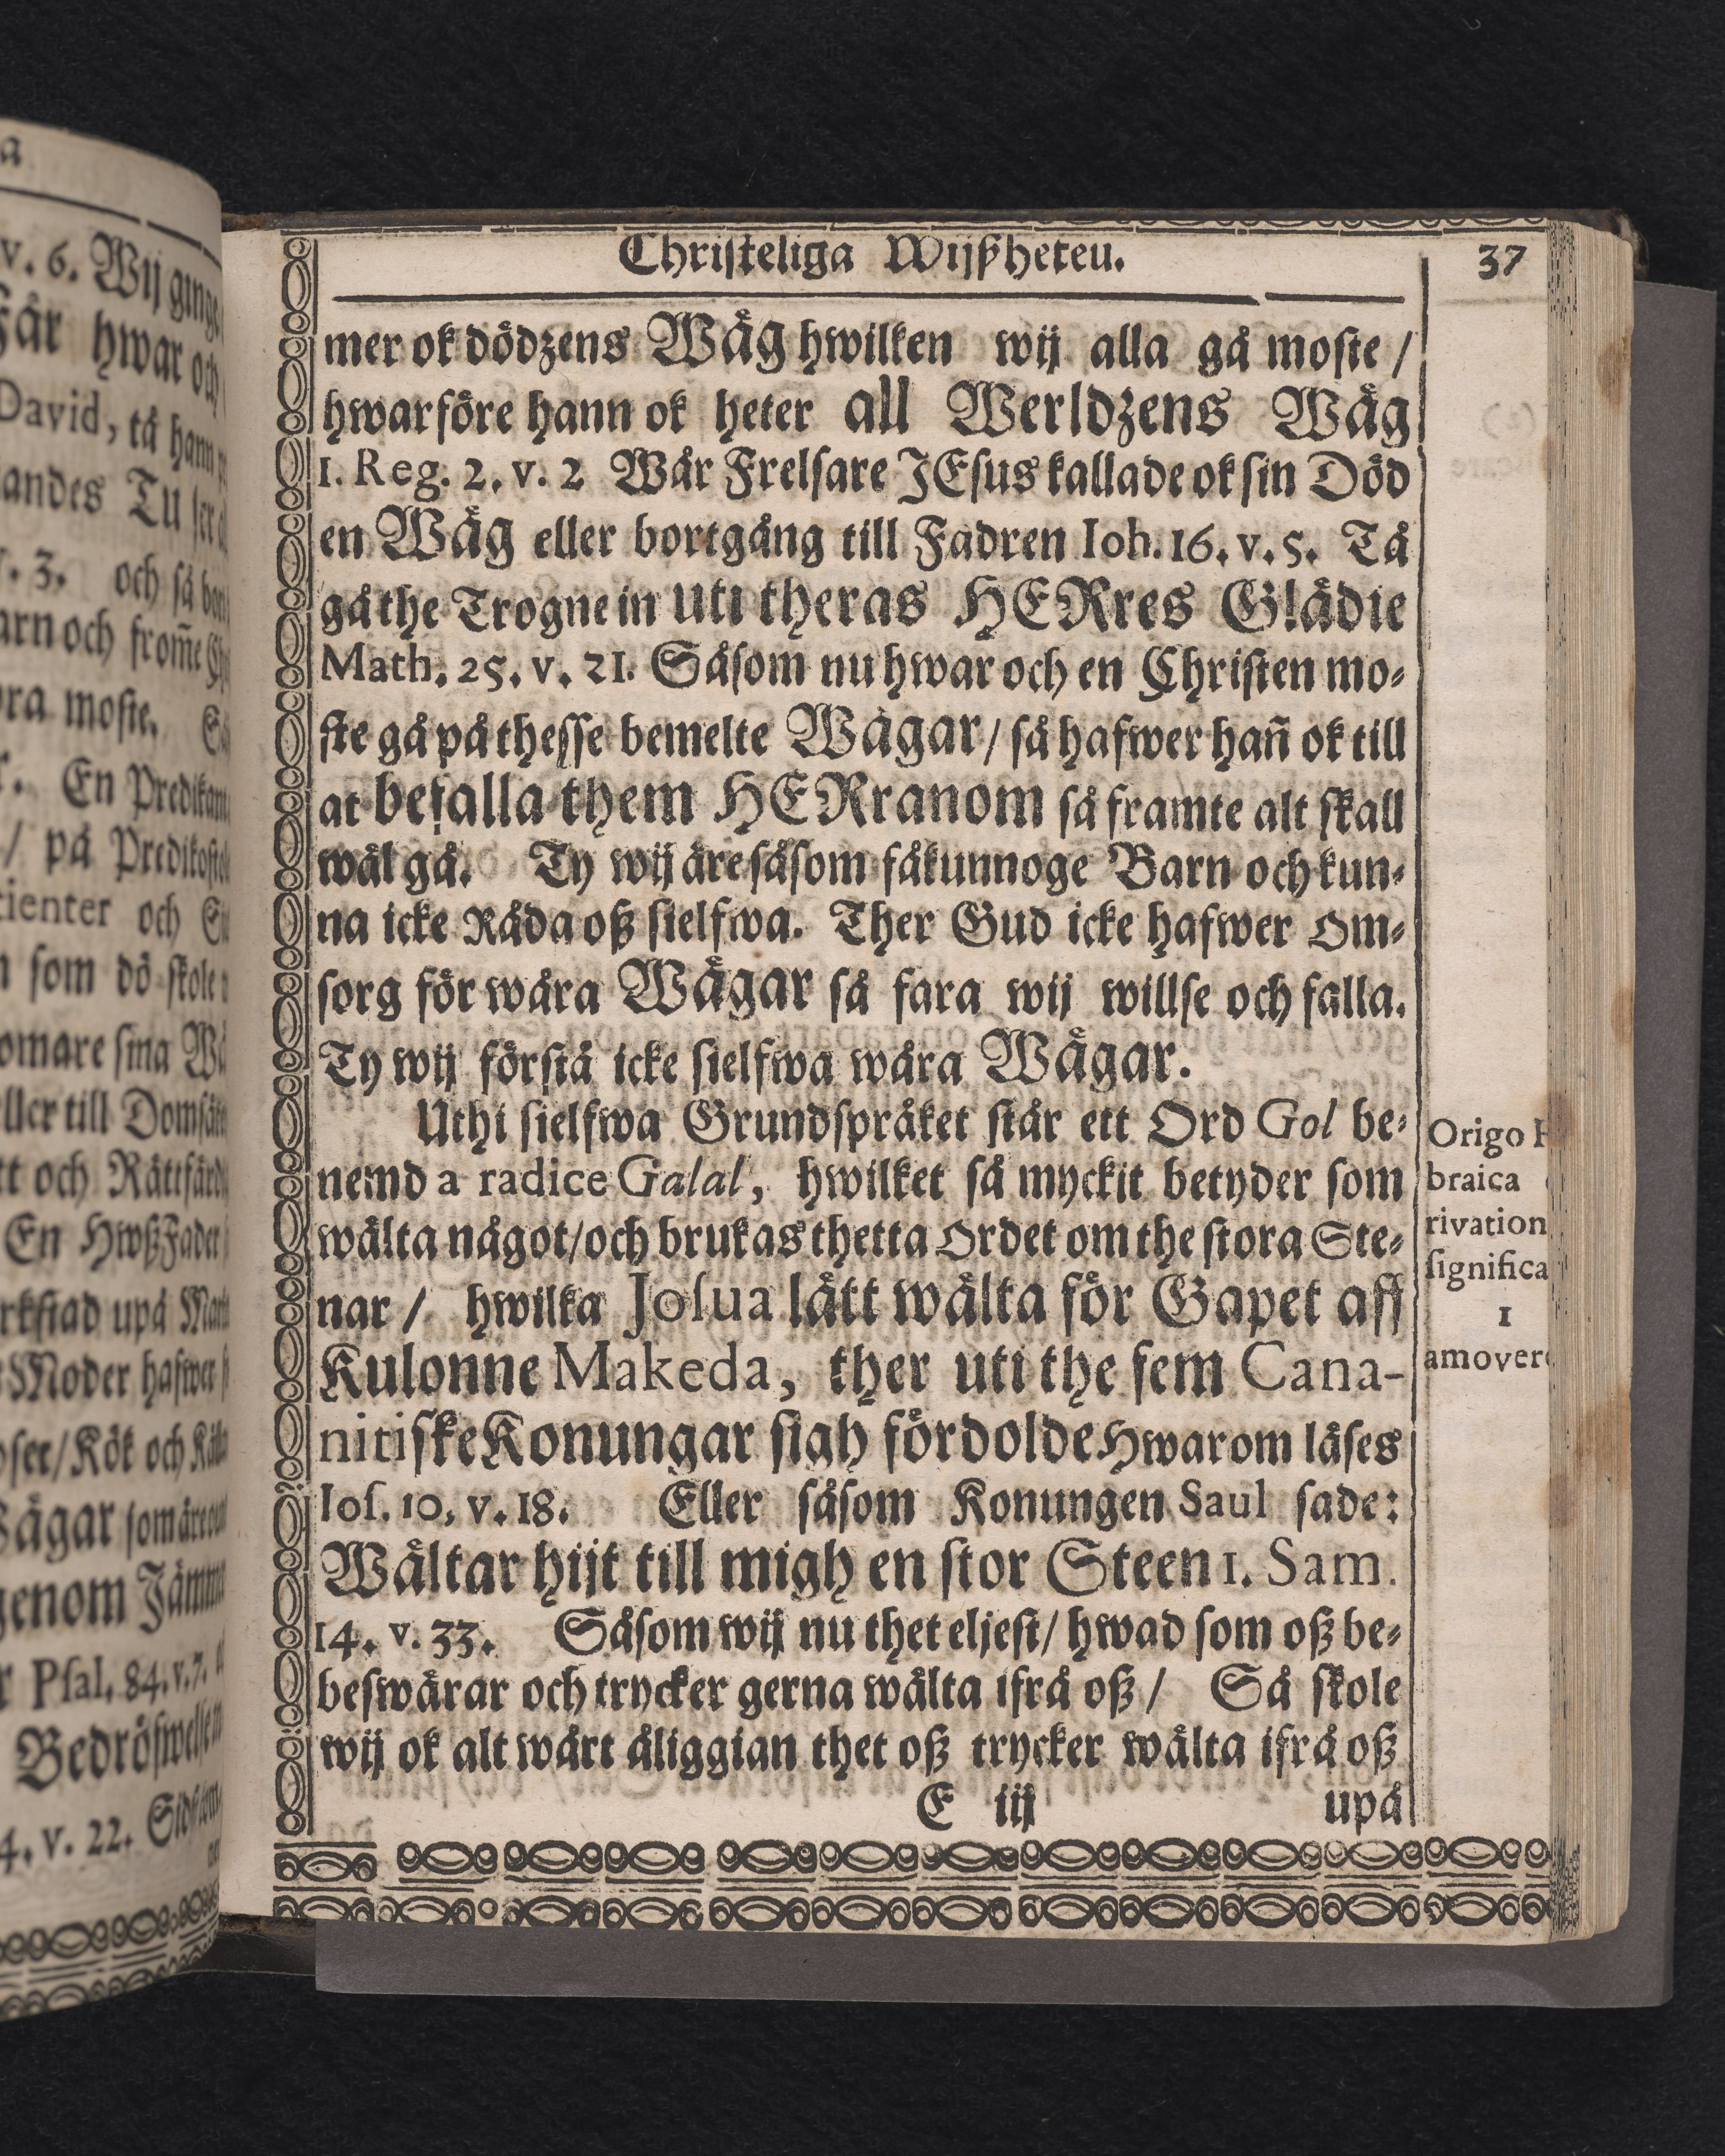 a
v. 6. Wij
Får hwar och
David, tå hann
andes TU
v. 3. och så
arn och from̃e
ra moste.
r. En Predikant
/ på
tienter och
n som dö skole
omare sina
eller till
tt och
En HwßFader
rkstad upå
Moder hafwer
oser/Kök och
Wägar som äre
genom
r Psal. 84. v. 7.
4. v. 22.
Christeliga Wijßheteu.
37
mer ok dödzens Wäg hwilken wij alla gå moste /
hwarföre hann ok heter all Werldzens Wäg
1. Reg. 2. v. 2 Wår Frelsare JEsus kallade ok sin Död
en Wäg eller bortgång till Fadren Ioh. 16. v. 5. Tå
gå the Trogne in uti theras HERres Glädie
Math. 25. v. 21. Såsom nu hwar och en Christen mo-
ste gå på thesse bemelte Wägar / så hafwer hañ ok till
at befalla them HERranom så framte alt skall
wäl gå. Ty wij äre såsom fåkunnoge Barn och kun-
na icke Råda oß sielfwa. Ther Gud icke hafwer Om-
sorg för wåra Wägar så fara wij willse och falla.
Ty wij förstå icke sielfwa wåra Wägar.
Uthi sielfwa Grundspråket står ett Ord Gol be-
nemd a radice Galal, hwilket så myckit betyder som
wälta något/och brukas thetta Ordet om the stora Ste-
nar / hwilka Josua lätt wälta för Gapet aff
Kulonne Makeda, ther uti the fem Cana-
nitiske Konungar sigh fördolde Hwarom läses
Ios. 10, v. 18. Eller såsom Konungen Saul sade:
Wältar hijt till migh en stor Steen 1. Sam.
14. v. 33. Såsom wij nu thet eljest/ hwad som oß be-
beswärar och trycker gerna wälta ifrå oß / Så skole
wij ok alt wårt åliggian thet oß trycker wälta ifrå oß
E iij upå
Origo H
braica
rivation
significa
1
amover